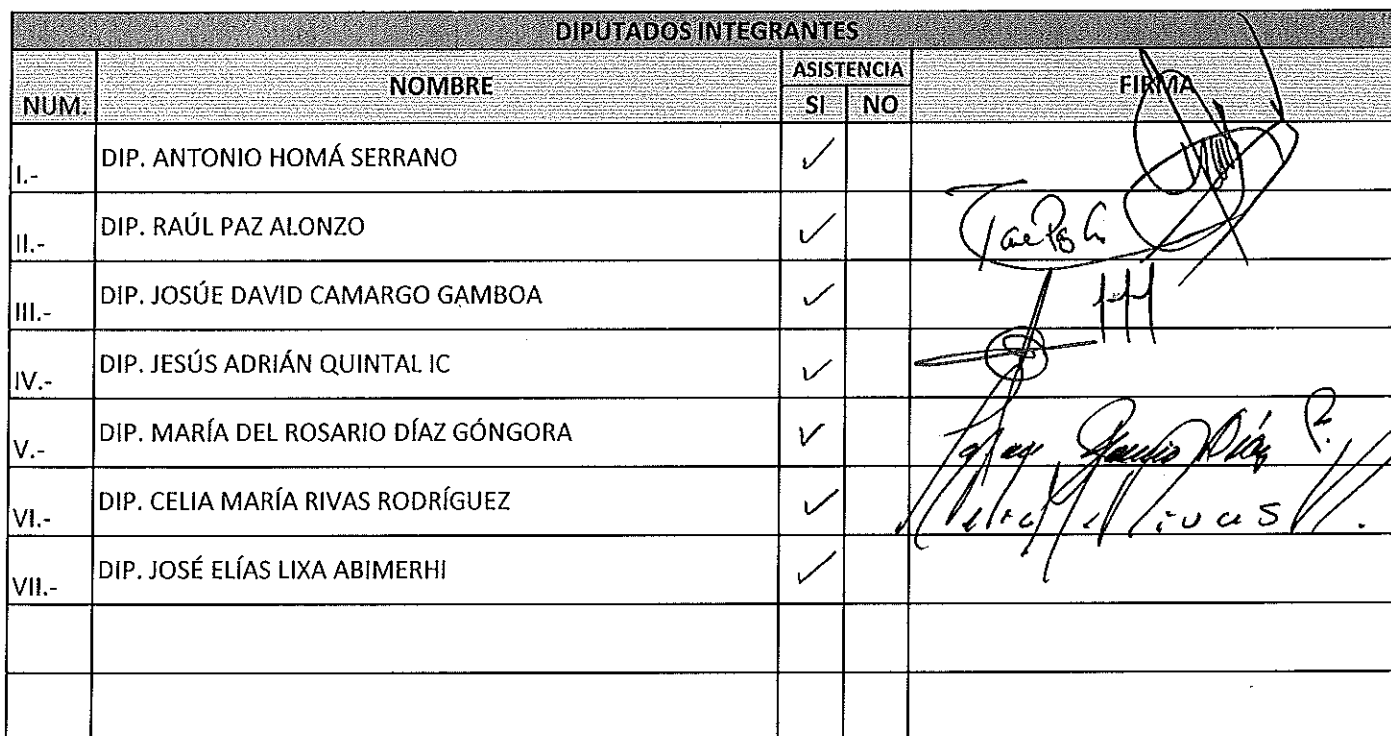 DIPUTADOS INTEGRANTES
NUM. NOMBRE ASISTENCIA FIRMA
SI NO
I.- DIP. ANTONIO HOMÁ SERRANO ✓
II.- DIP. RAÚL PAZ ALONZO ✓
III.- DIP. JOSÚE DAVID CAMARGO GAMBOA ✓
IV.- DIP. JESÚS ADRIÁN QUINTAL IC ✓
V.- DIP. MARÍA DEL ROSARIO DÍAZ GÓNGORA ✓ Díaz
VI.- DIP. CELIA MARÍA RIVAS RODRÍGUEZ ✓ Rivas
VII.- DIP. JOSÉ ELÍAS LIXA ABIMERHI ✓